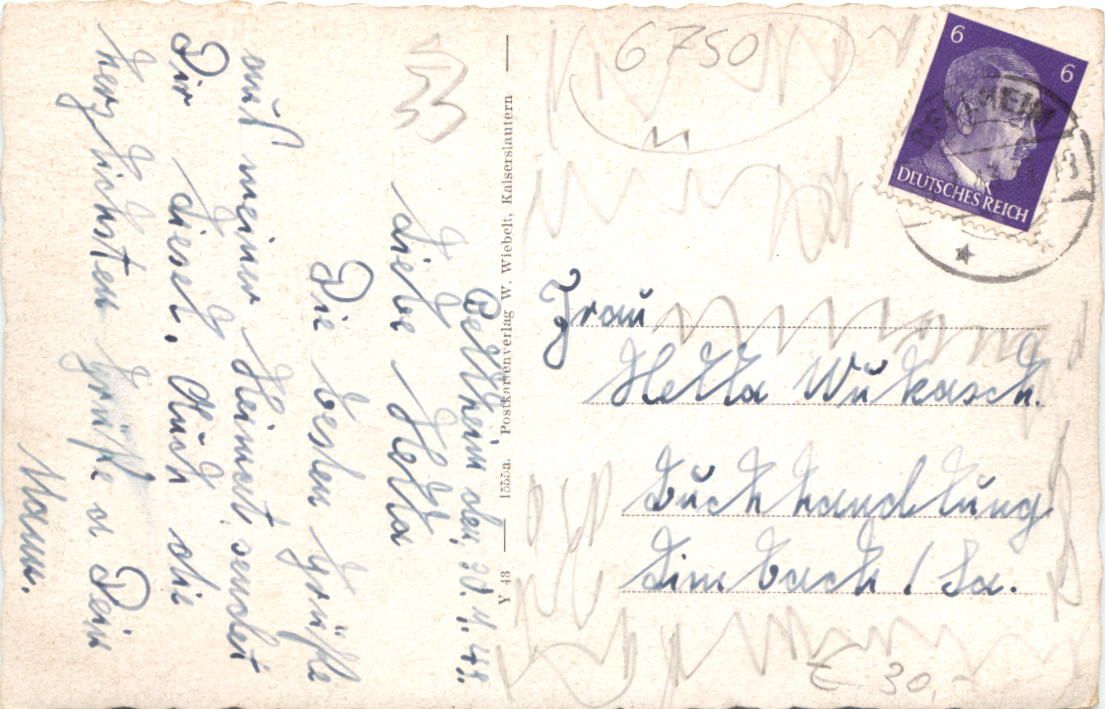 Bellheim den, 20. 4. 43.
Liebe Hella
Die besten Grüße
aus meiner Heimat, sendet
Dir diesel, Auch die
herzlichsten Grüße a Dein
Mann.
Y 43 — 1555a. Postkartenverlag W. Wiebelt, Kaiserslautern
6750
6 6
DEUTSCHES REICH
BELLHEIM
Frau
Hella Wukasch.
Buchhandlung
Limbach / Sa.
30,-